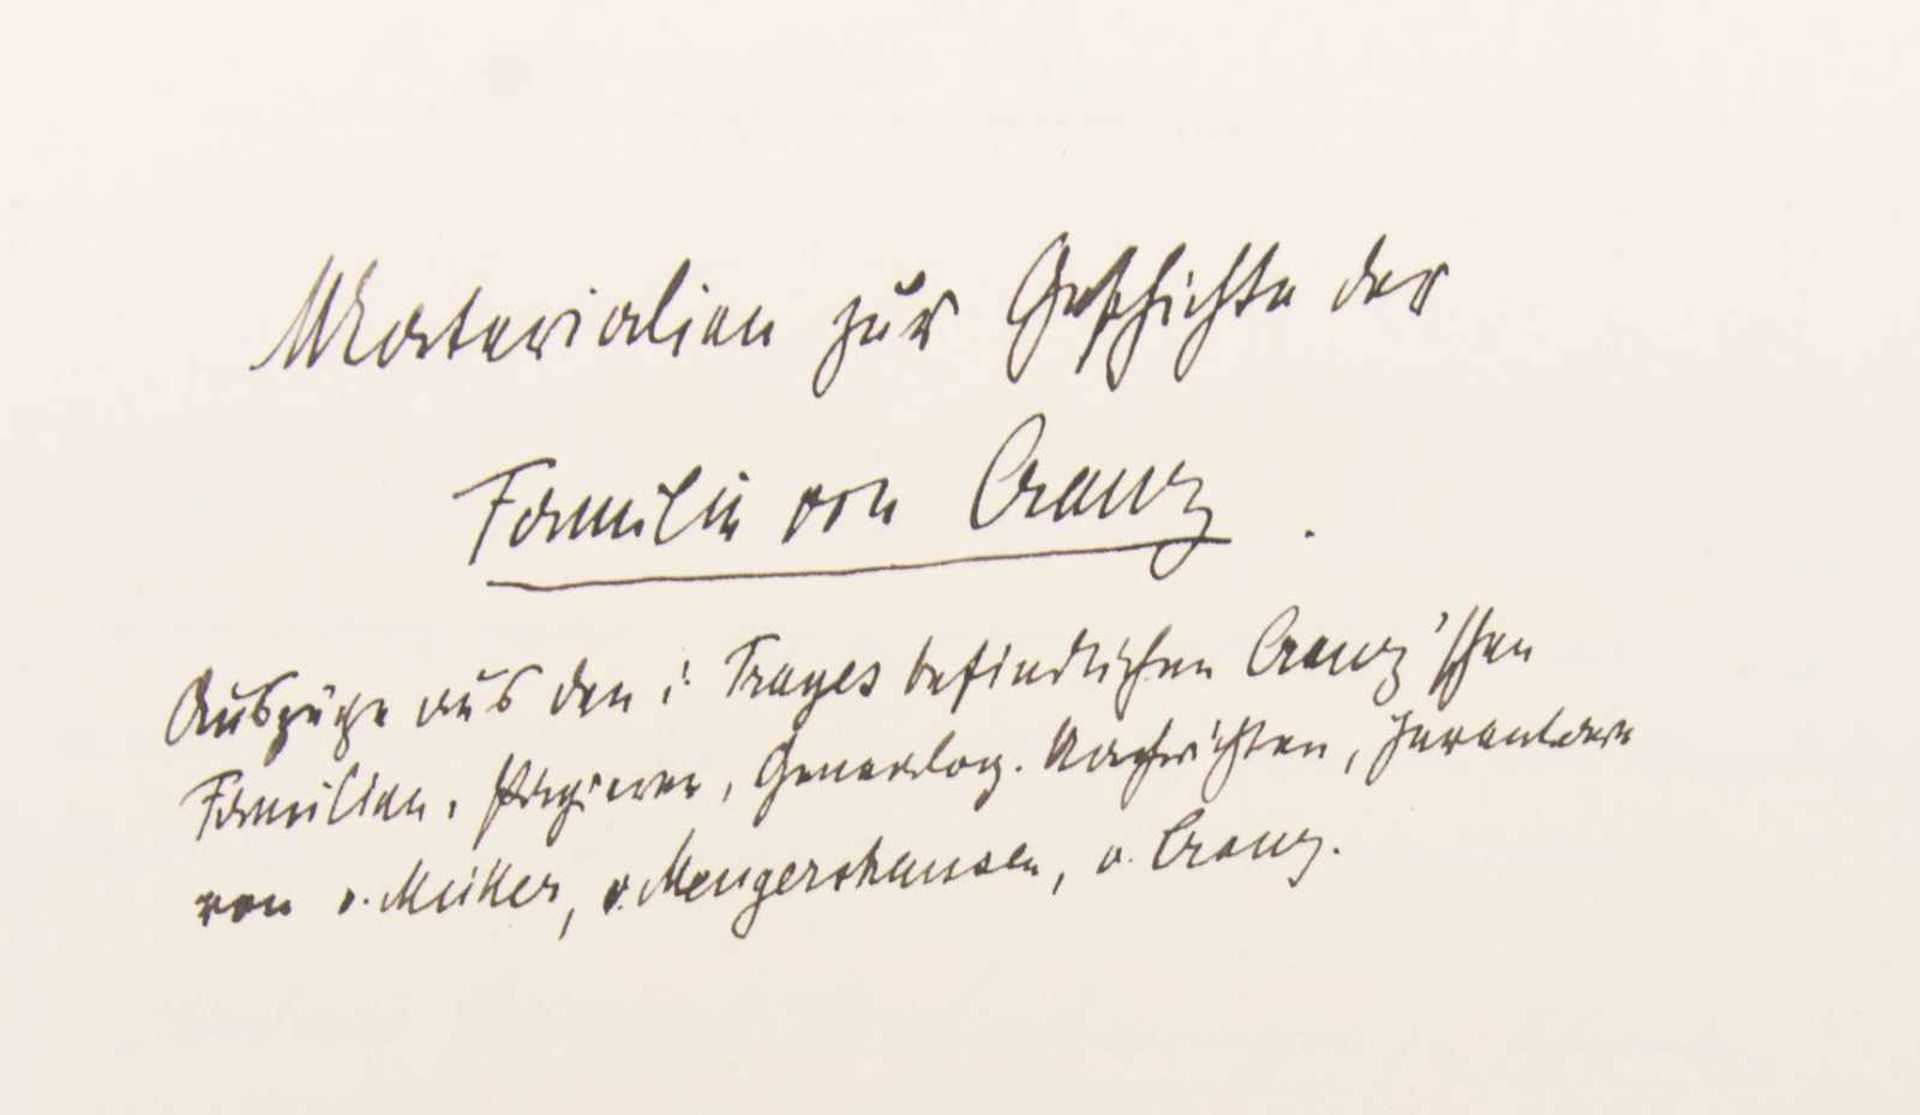 Materialien zur Geschichte der
Familie von Cranz.
Auszüge aus den i. Trages befindlichen Cranz'schen
Familien-Papieren, Genealog. Nachrichten, Inventare
von v. Müller, v. Mengershausen, v. Cranz.